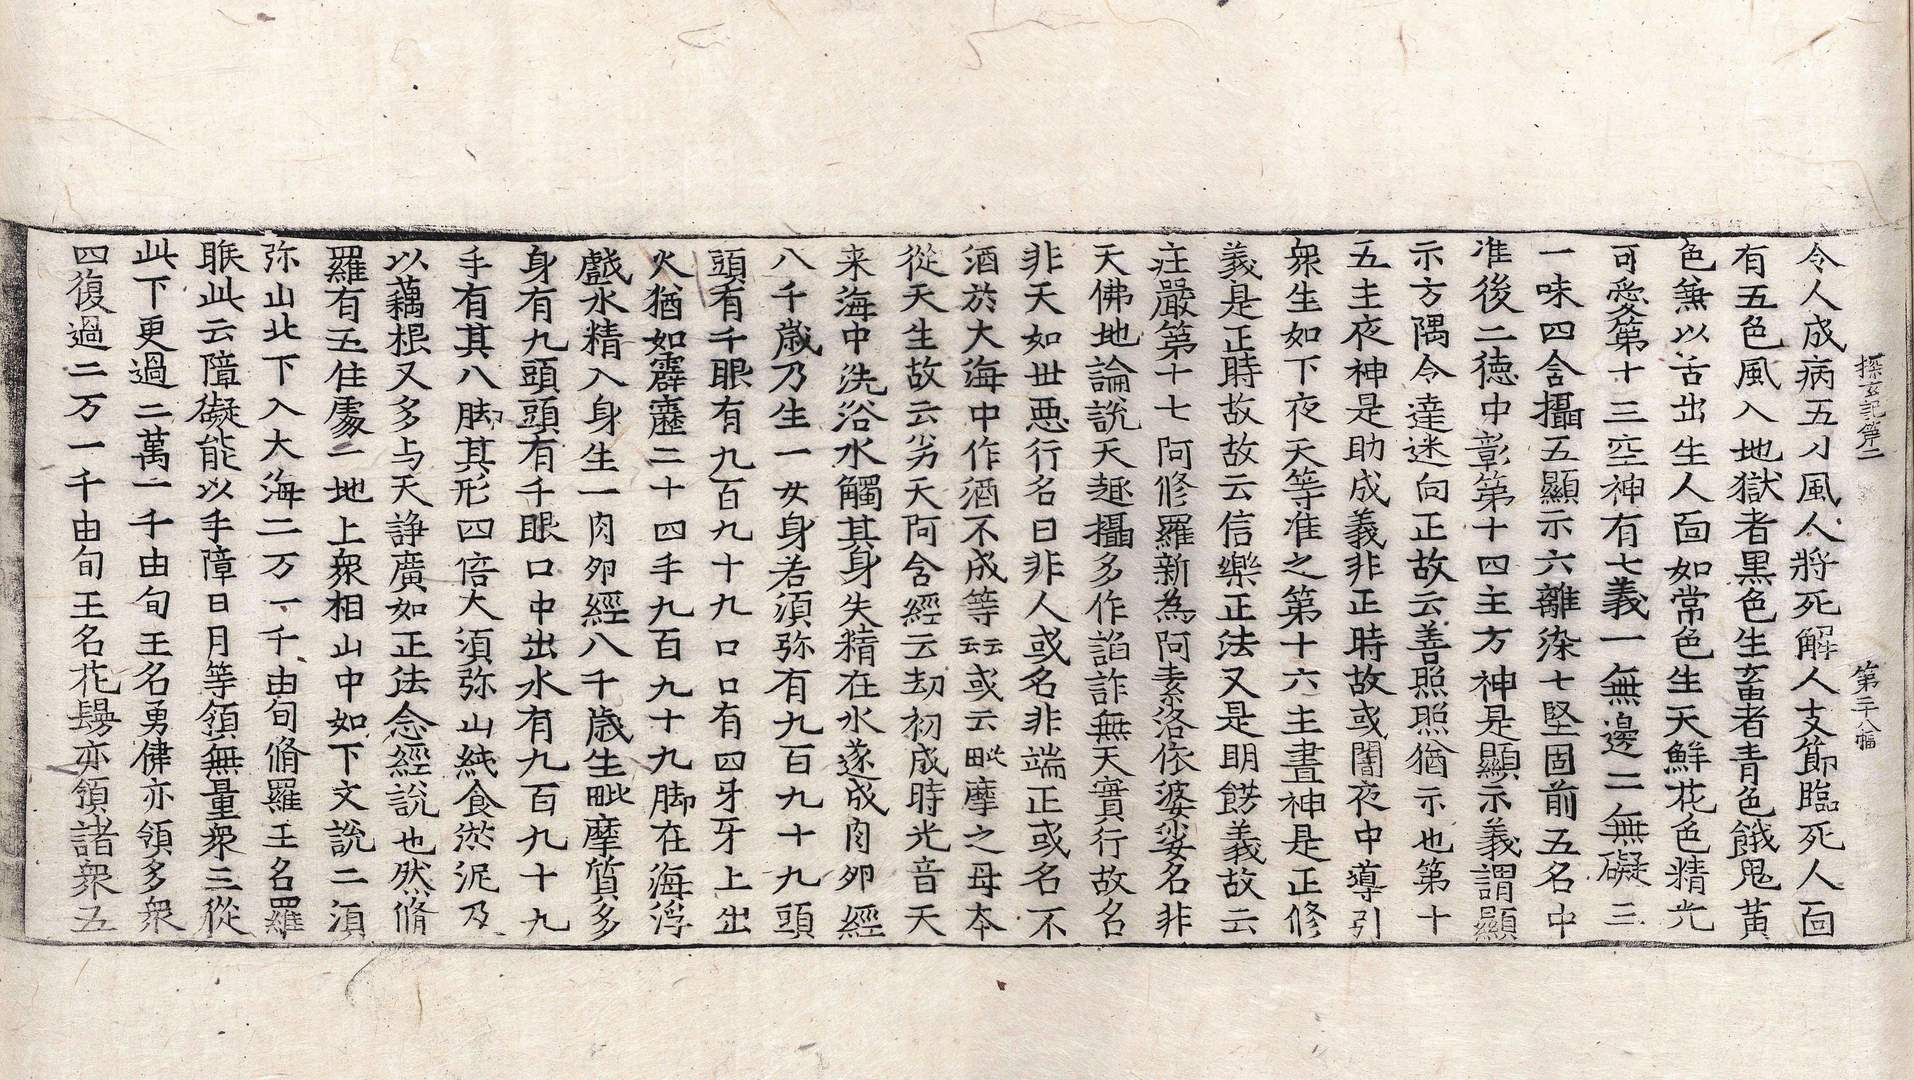 探玄記第二　第二十八幅
令人成病五刀風人將死解人支節臨死人面
有五色風入地獄者黑色生畜者青色餓鬼黃
色無以舌出生人面如常色生天鮮花色精光
可愛第十三空神有七義一無邊二無礙三
一味四含攝五顯示六離染七堅固前五名中
准後二德中彰第十四主方神是顯示義謂顯
示方隅令達迷向正故云善照照猶示也第十
五主夜神是助成義非正時故或闇夜中導引
衆生如下夜天等准之第十六主晝神是正修
義是正時故故云信樂正法又是明䏻義故云
庄嚴第十七阿修羅新為阿素洛依婆娑名非
天佛地論說天趣攝多作諂詐無天實行故名
非天如世惡行名曰非人或名非端正或名不
酒於大海中作酒不成等云云或云毗摩之母本
從天生故云劣天阿含經云刧初成時光音天
来海中洗浴水觸其身失精在水遂成肉卵經
八千歲乃生一女身若須弥有九百九十九頭
頭有千眼有九百九十九口口有四牙牙上出
火猶如霹靂二十四手九百九十九脚在海浮
戲水精入身生一肉卵經八千歲生毗摩質多
身有九頭頭有千眼口中出水有九百九十九
手有其八脚其形四倍大須弥山純食淤泥及
以藕根又多与天諍廣如正法念經說也然脩
羅有五住處一地上衆相山中如下文說二須
弥山北下入大海二万一千由旬脩羅王名羅
睺此云障礙能以手障日月等領無量衆三從
此下更過二萬一千由旬王名勇健亦領多衆
四復過二万一千由旬王名花鬘亦領諸衆五